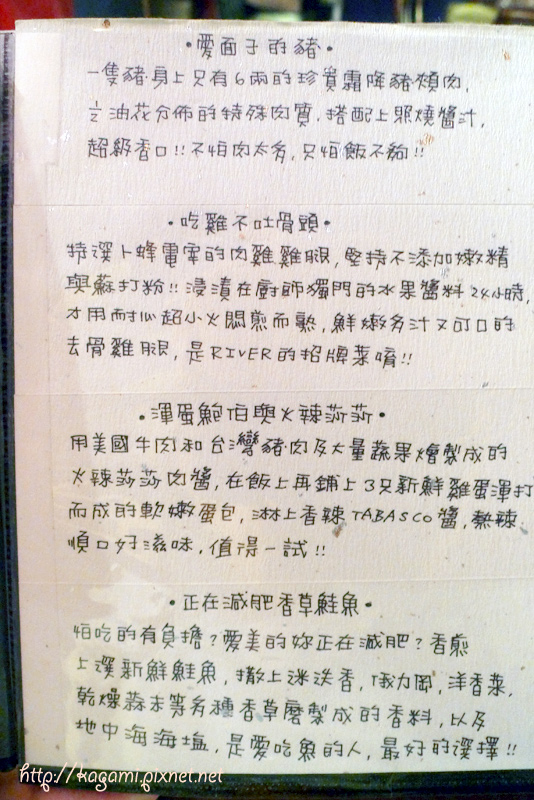 •愛面子的豬•
一隻豬身上只有6兩的珍貴霜降豬頰肉,
油花分佈的特殊肉質,搭配上照燒醬汁,
超級香口!!不怕肉太多,只怕飯不夠!!
•吃雞不吐骨頭•
特選卜蜂電宰的肉雞雞腿,堅持不添加嫩精
與蘇打粉!!浸漬在廚師獨門的水果醬料24小時,
才用耐心超小火悶煎而熟,鮮嫩多汁又可口的
去骨雞腿,是RIVER的招牌菜唷!!
•渾蛋鮑伯與火辣莎莎•
用美國牛肉和台灣豬肉及大量蔬果燴製成的
火辣莎莎肉醬,在飯上再鋪上3只新鮮雞蛋渾打
而成的軟嫩蛋包,淋上香辣TABASCO醬,熱辣
順口好滋味,值得一試!!
•正在減肥香草鮭魚•
怕吃的有負擔?愛美的妳正在減肥?香煎
上選新鮮鮭魚,撒上迷迭香,俄力岡,洋香菜,
乾燥蒜末等多種香草磨製成的香料,以及
地中海海塩,是愛吃魚的人,最好的選擇!!
http://kagami.pixnet.net